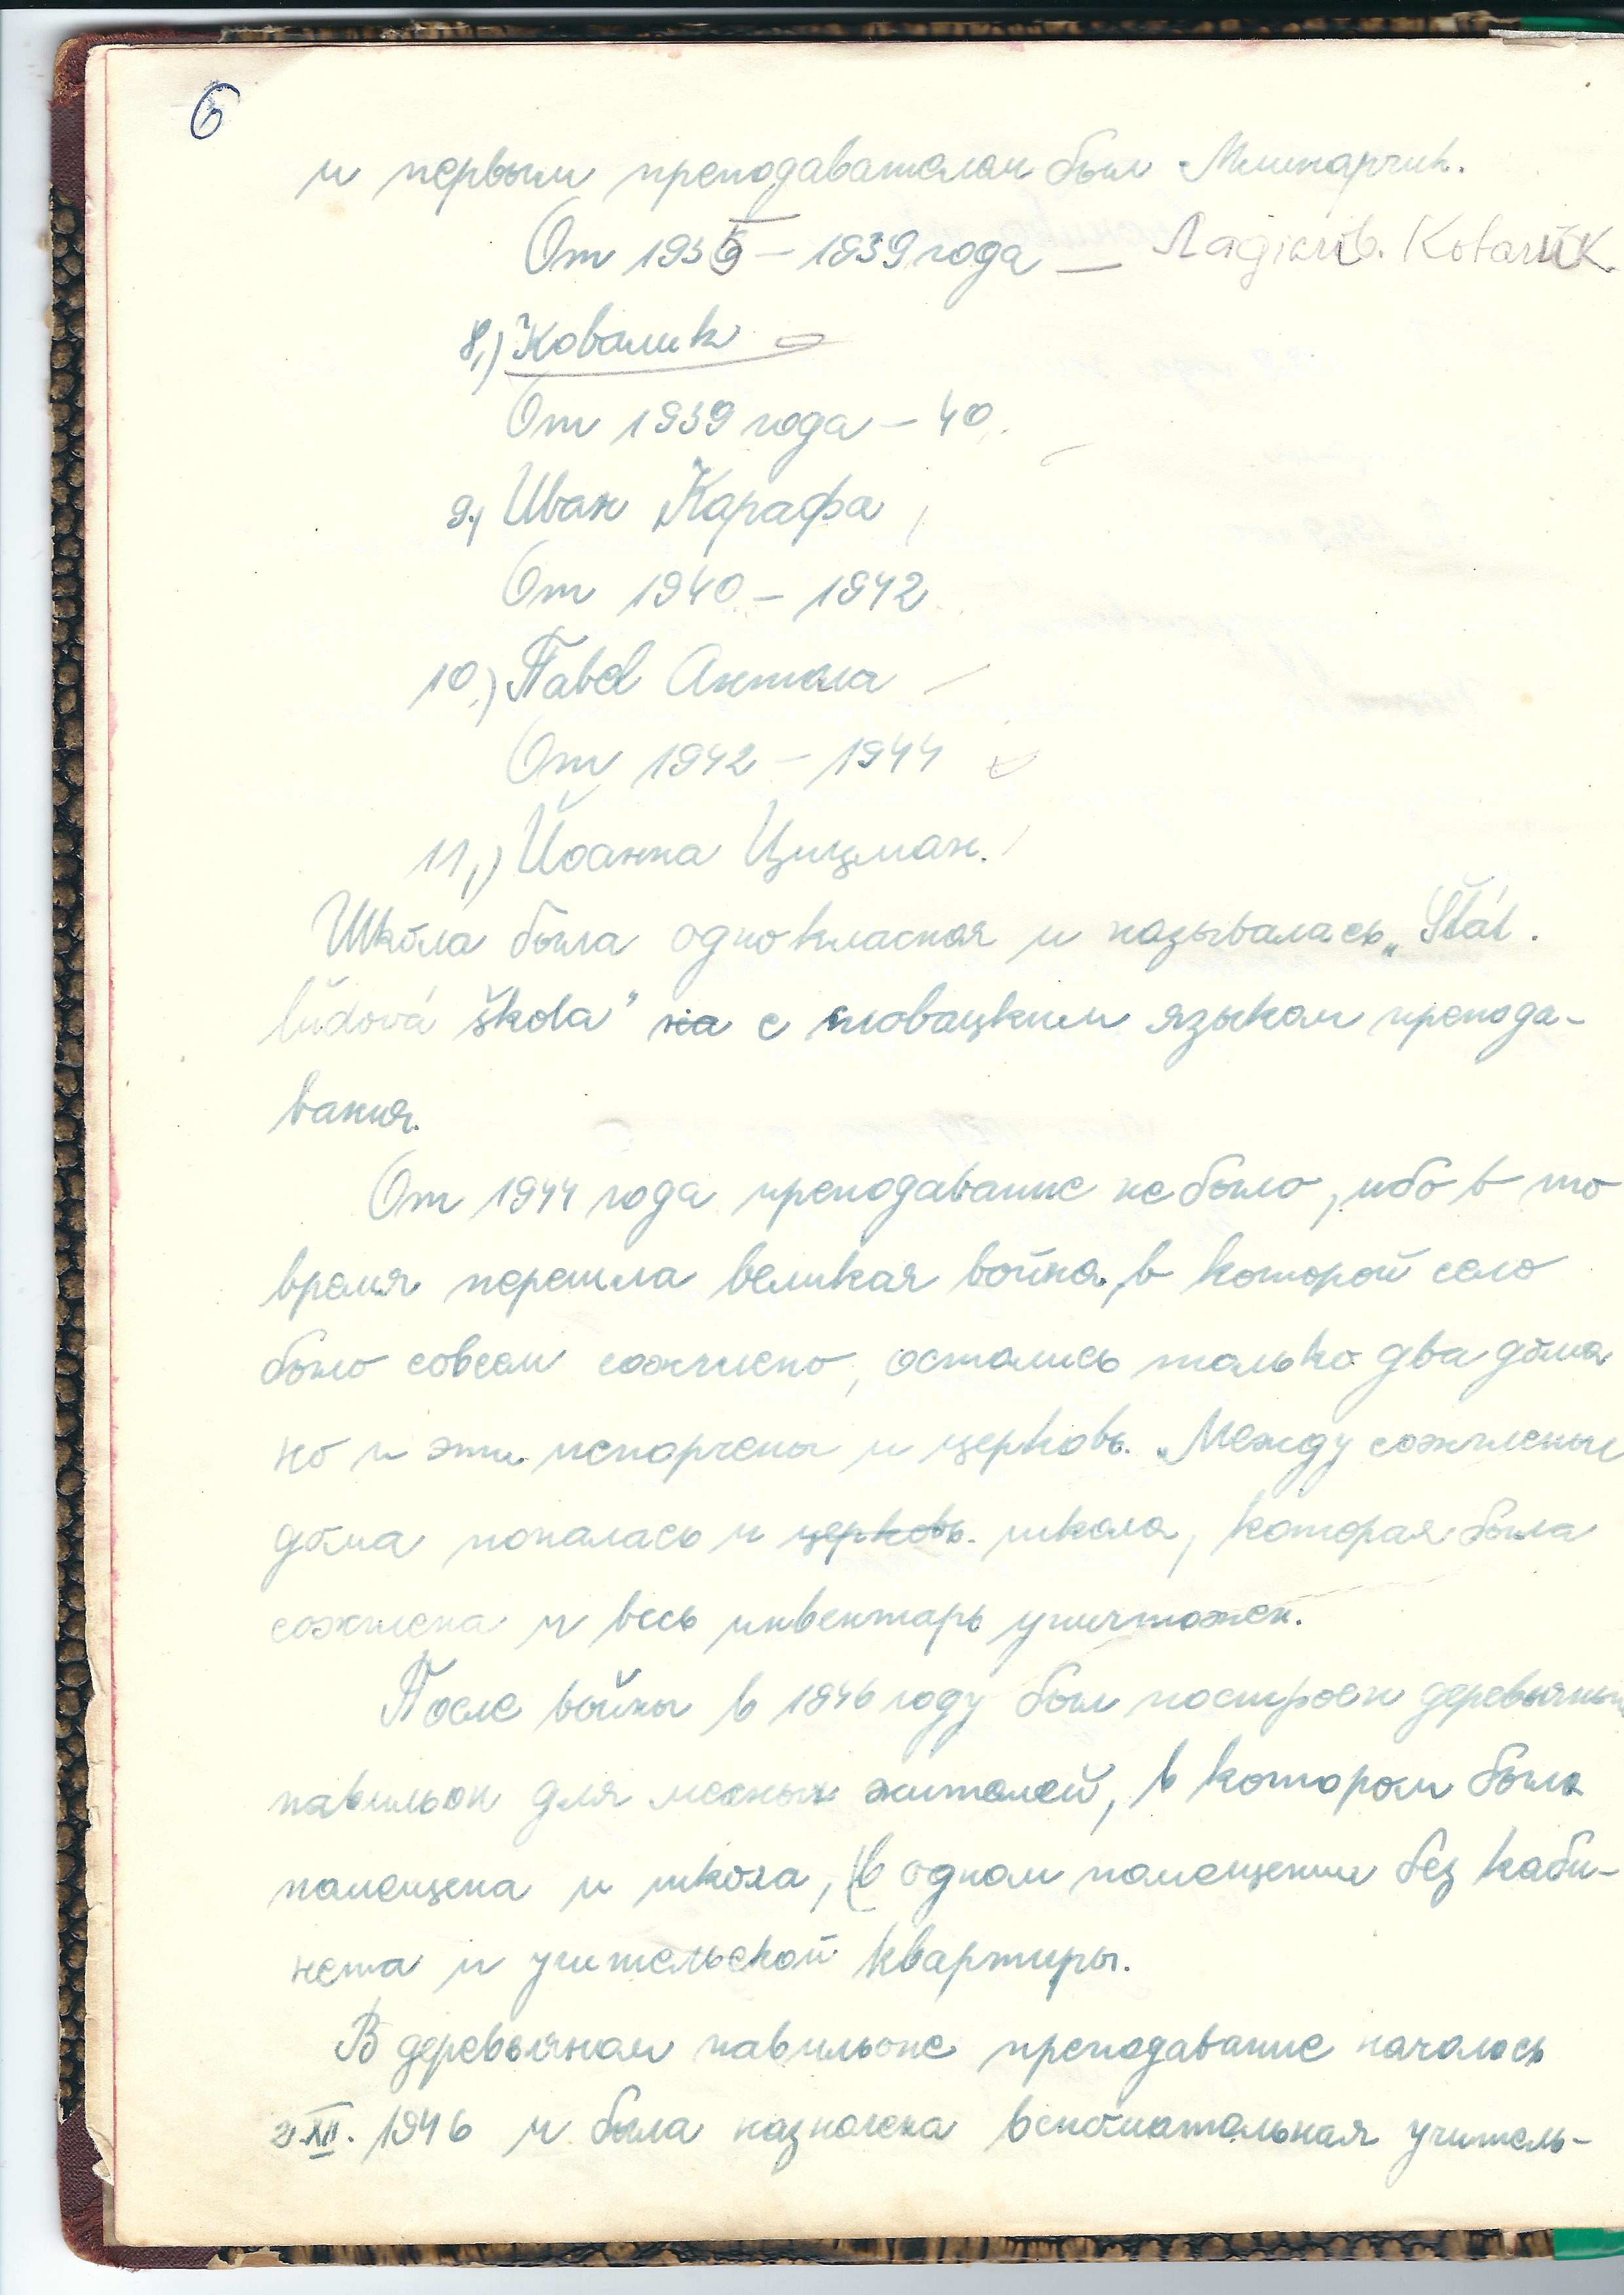 6
и первым преподавателем был Млинарчик.
От 1935 – 1939 года —
8,) Ковалик
От 1939 года – 40.
9,) Иван Карафа
От 1940 – 1942
10,) Павел Антола
От 1942 – 1944
11,) Йоанна Цицман.
Школа была однокласная и называлась „Štát.
ľudová škola" на с словацким языком препода-
вания.
От 1944 года преподавание не было, ибо в то
время перешла великая война, в которой село
было совсем сожжено, остались только два дома
но и эти испорчены и церковь. Между сожжены
дома попалась и церковь. школа, которая была
сожжена и весь инвентарь уничтожен.
После войны в 1946 году был построен
павильон для месных жителей, в котором была
помещена и школа, в одном помещении без каби-
нета и учительской квартиры.
В деревянном павильоне преподавание началось
2.XII. 1946 и была назначена вспомательная учитель-